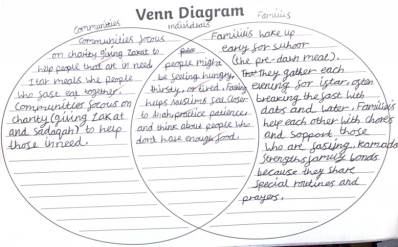 Venn Diagram
Communities
Individuals
Families
Communities focus
on charity giving Zakat to
help people that are in need
Iftar meals the people
who fast eat together.
Communities focus on
charity (giving Zakat
and sadaqah) to help
those in need.
people might
be feeling hungry,
thirsty, or tired. Fasting
helps Muslims feel closer
to Allah, practice patience,
and think about people who
don't have enough food.
Families wake up
early for suhoor
(the pre-dawn meal).
That they gather each
evening for iftar, often
breaking the fast with
dats and water. Families
help each other with chores
and support those
who are fasting. Ramada
strengths family bonds
because they share
special routines and
prayers.